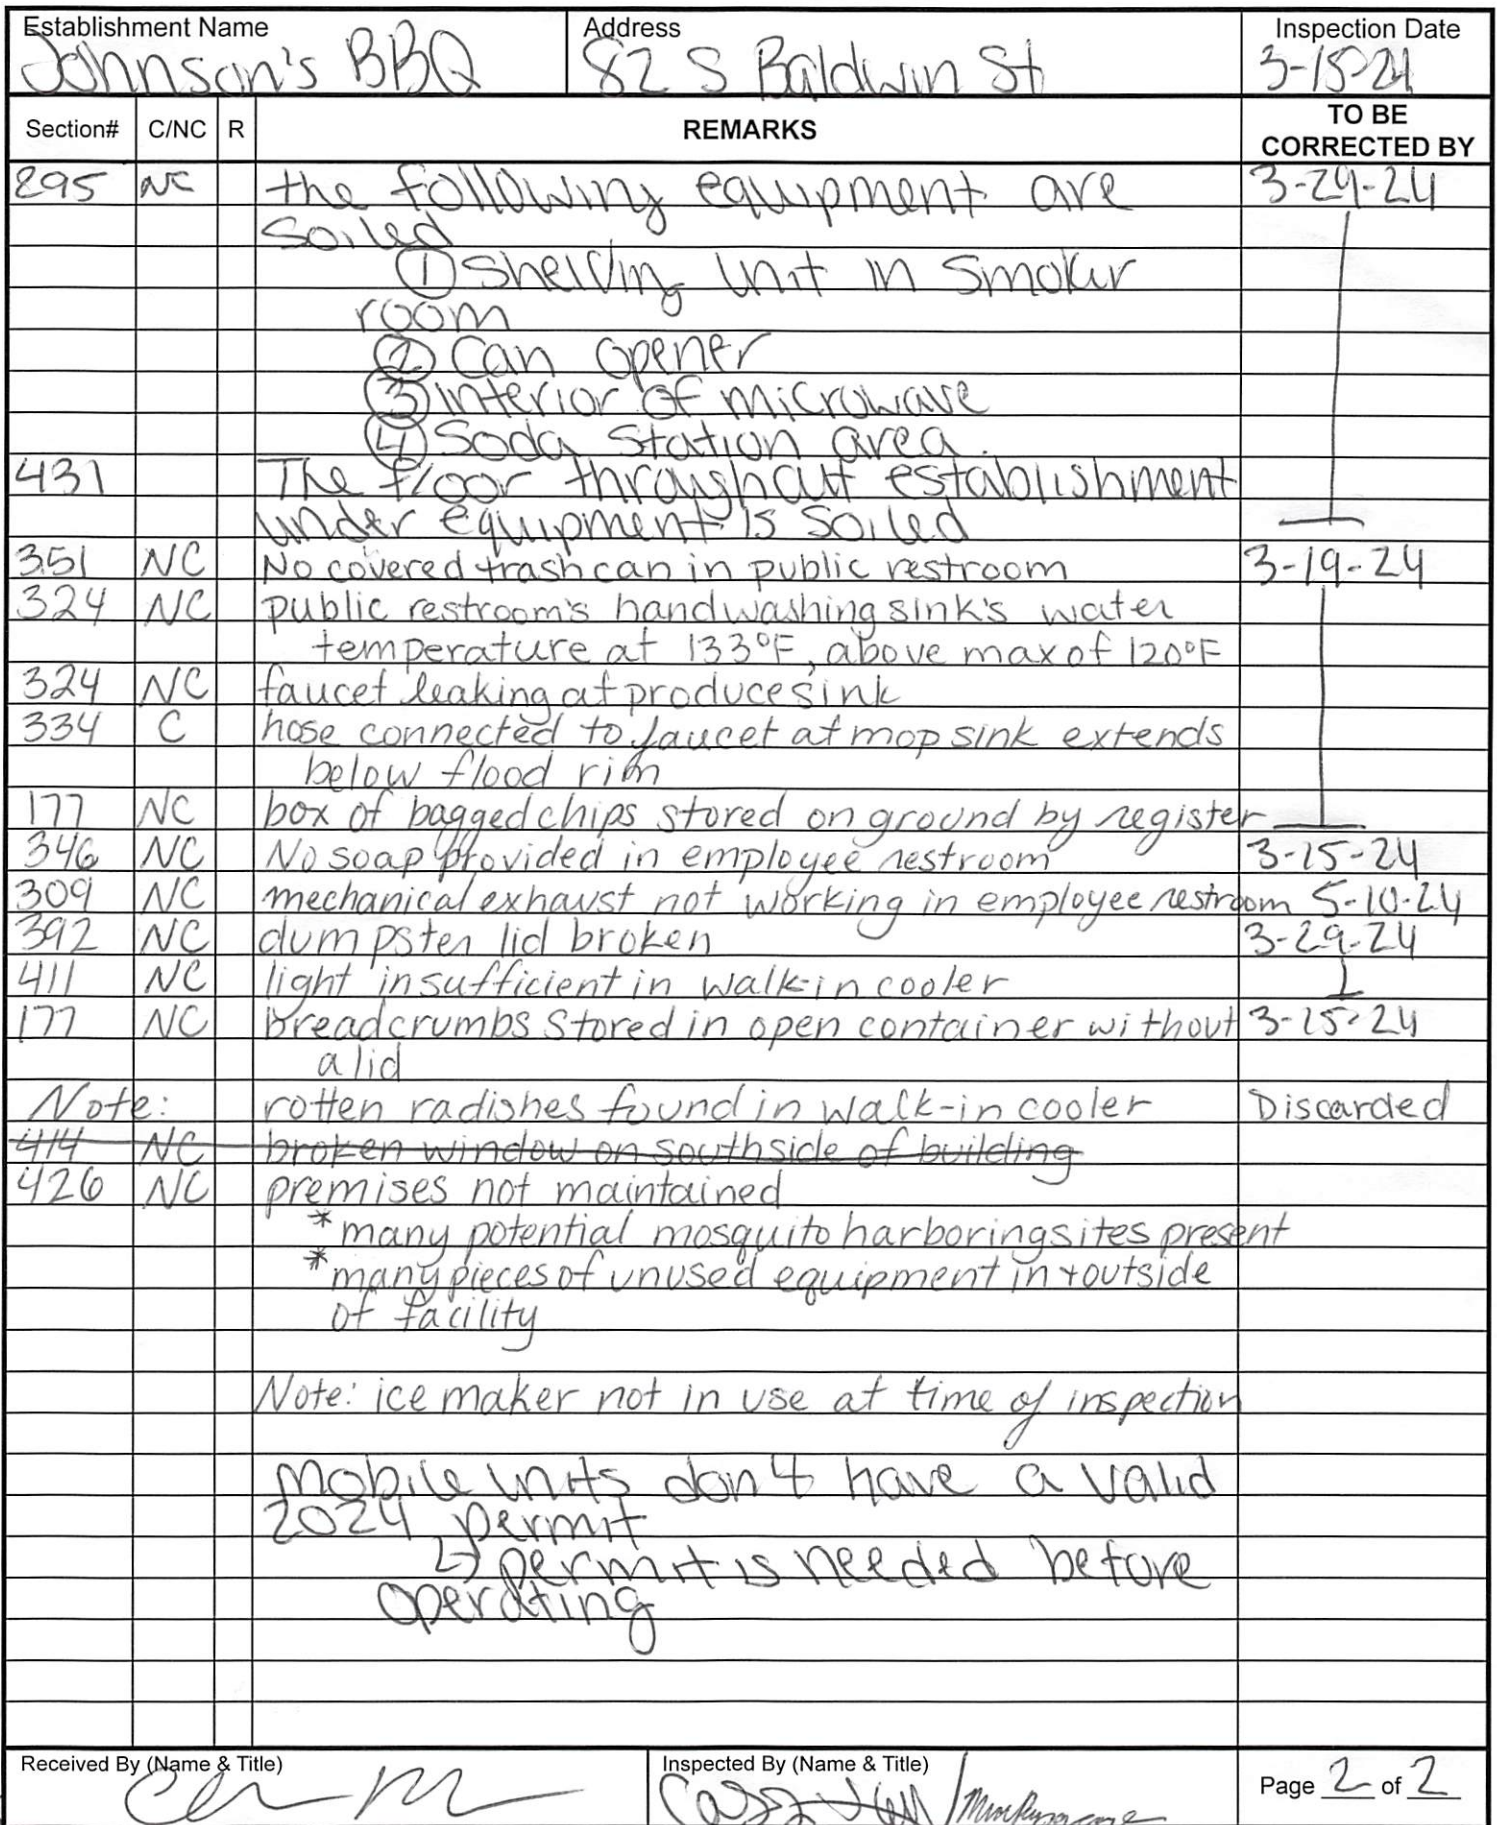 Establishment Name Address Inspection Date
Johnson's BBQ 82 S Baldwin St 3-15-24
Section# C/NC R REMARKS TO BE CORRECTED BY
295 NC the following equipment are 3-29-24
soiled
① Shelving unit in smoker
room
② Can opener
③ interior of microwave
④ Soda station area.
431 The floor throughout establishment
under equipment is soiled
351 NC No covered trash can in public restroom 3-19-24
324 NC public restroom's handwashing sink's water
temperature at 133°F, above max of 120°F
324 NC faucet leaking at produce sink
334 C hose connected to faucet at mop sink extends
below flood rim
177 NC box of bagged chips stored on ground by register
346 NC No soap provided in employee restroom 3-15-24
309 NC mechanical exhaust not working in employee restroom 5-10-24
392 NC dumpster lid broken 3-29-24
411 NC light insufficient in walk-in cooler
177 NC breadcrumbs stored in open container without 3-15-24
a lid
Note: rotten radishes found in walk-in cooler Discarded
414 NC broken window on southside of building
426 NC premises not maintained
* many potential mosquito harboring sites present
* many pieces of unused equipment in + outside
of facility
Note: ice maker not in use at time of inspection
Mobile units don't have a valid
2024 permit
↳ permit is needed before
operating
Received By (Name & Title) Inspected By (Name & Title) Page 2 of 2